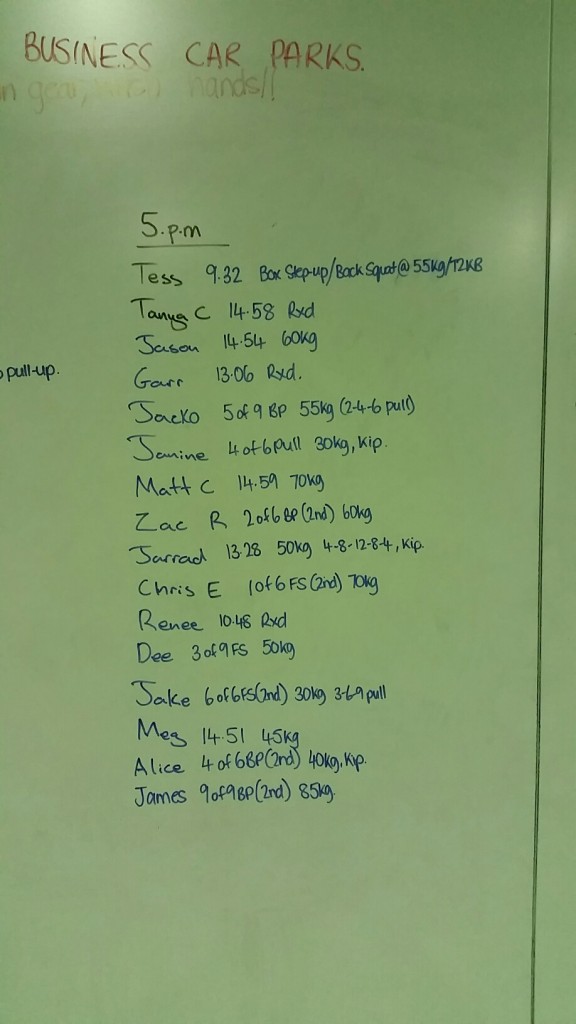 BUSINESS CAR PARKS.
n gear, hands!!
5.p.m
Tess 9.32 Box Step-up/Back Squat@55kg/12KB
Tanya C 14.58 Rxd
Jason 14.54 60kg
pull-up.
Garr 13.06 Rxd.
Jacko 5 of 9 BP 55kg (2-4-6 pull)
Janine 4 of 6 pull 30kg, Kip.
Matt C 14.59 70kg
Zac R 2 of 6 BP (2nd) 60kg
Jarrad 13.28 50kg 4-8-12-8-4, Kip.
Chris E 1 of 6 FS (2nd) 70kg
Renee 10.48 Rxd
Dee 3 of 9 FS 50kg
Jake 6 of 6 FS (2nd) 30kg 3-6-9 pull
Meg 14.51 45kg
Alice 4 of 6 BP (2nd) 40kg, Kip.
James 9 of 9 BP (2nd) 85kg.